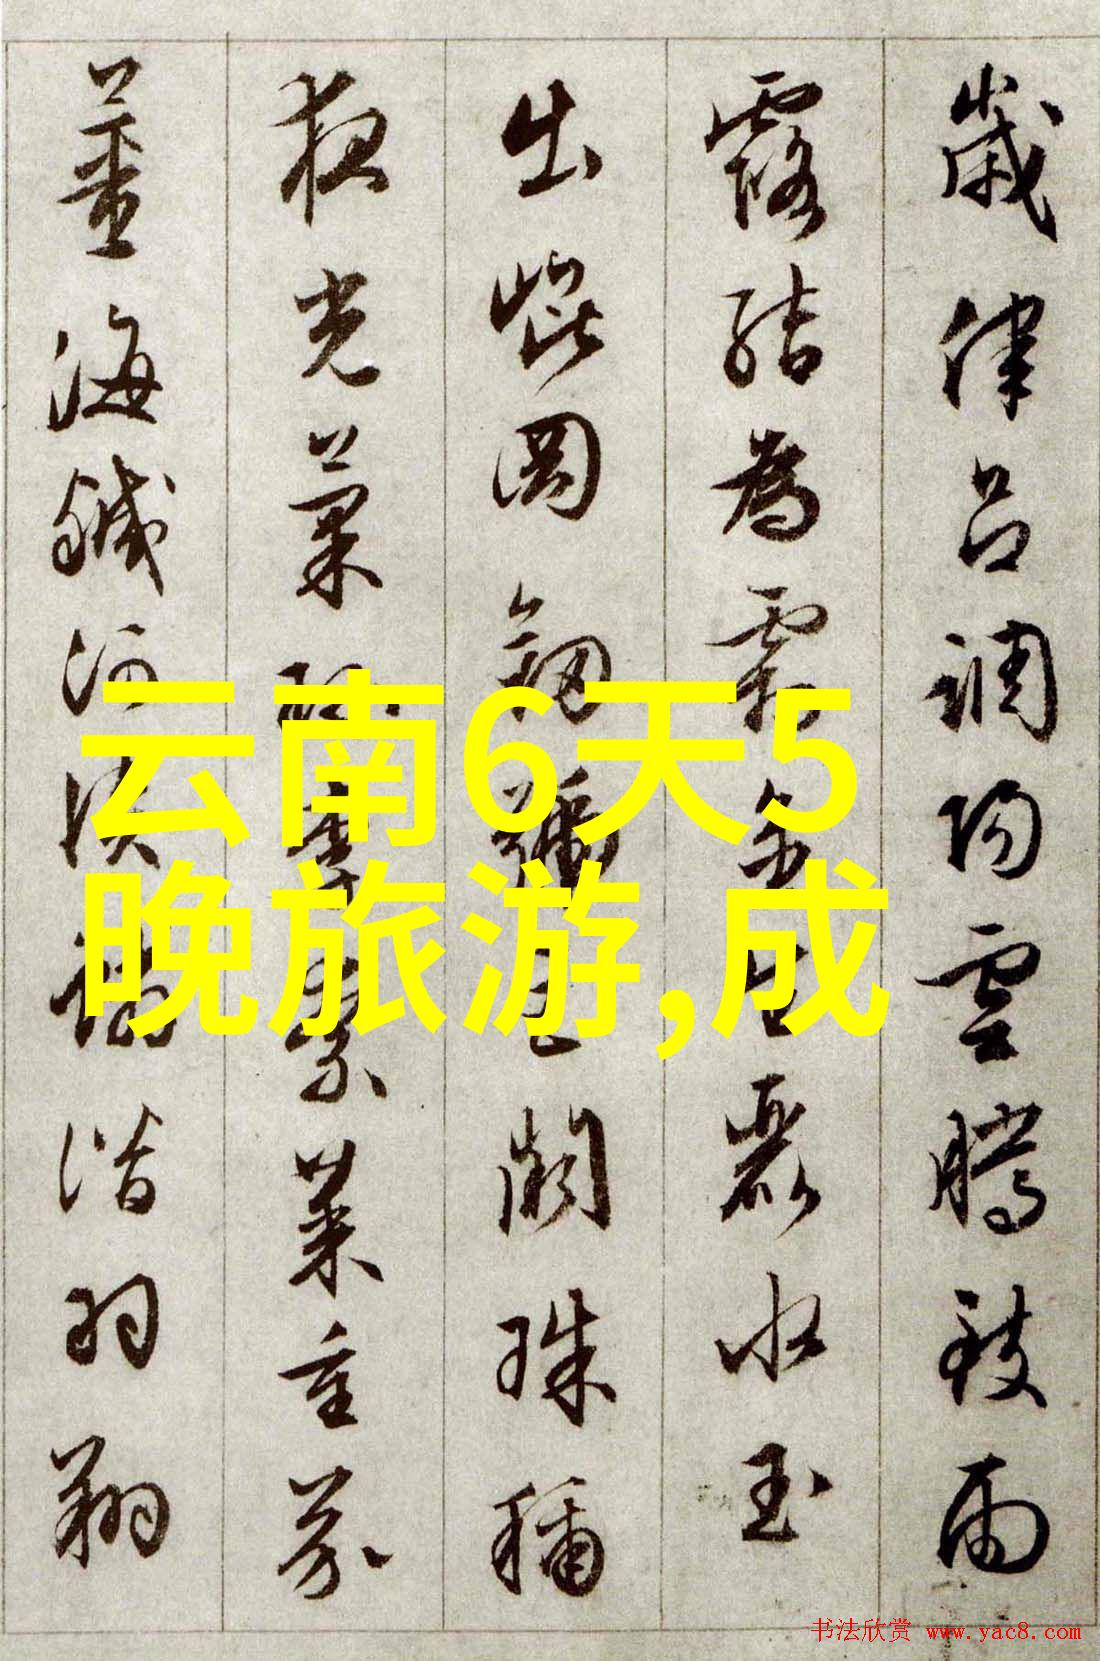 歲律呂調陽雲騰致雨
露結為霜金生麗水玉
出崐岡劍號巨闕珠稱
夜光菓珍李柰菜重芥
薑海鹹河淡鱗潛羽翔
云南6天5
晚旅游,成
书法欣赏 www.yac8.com